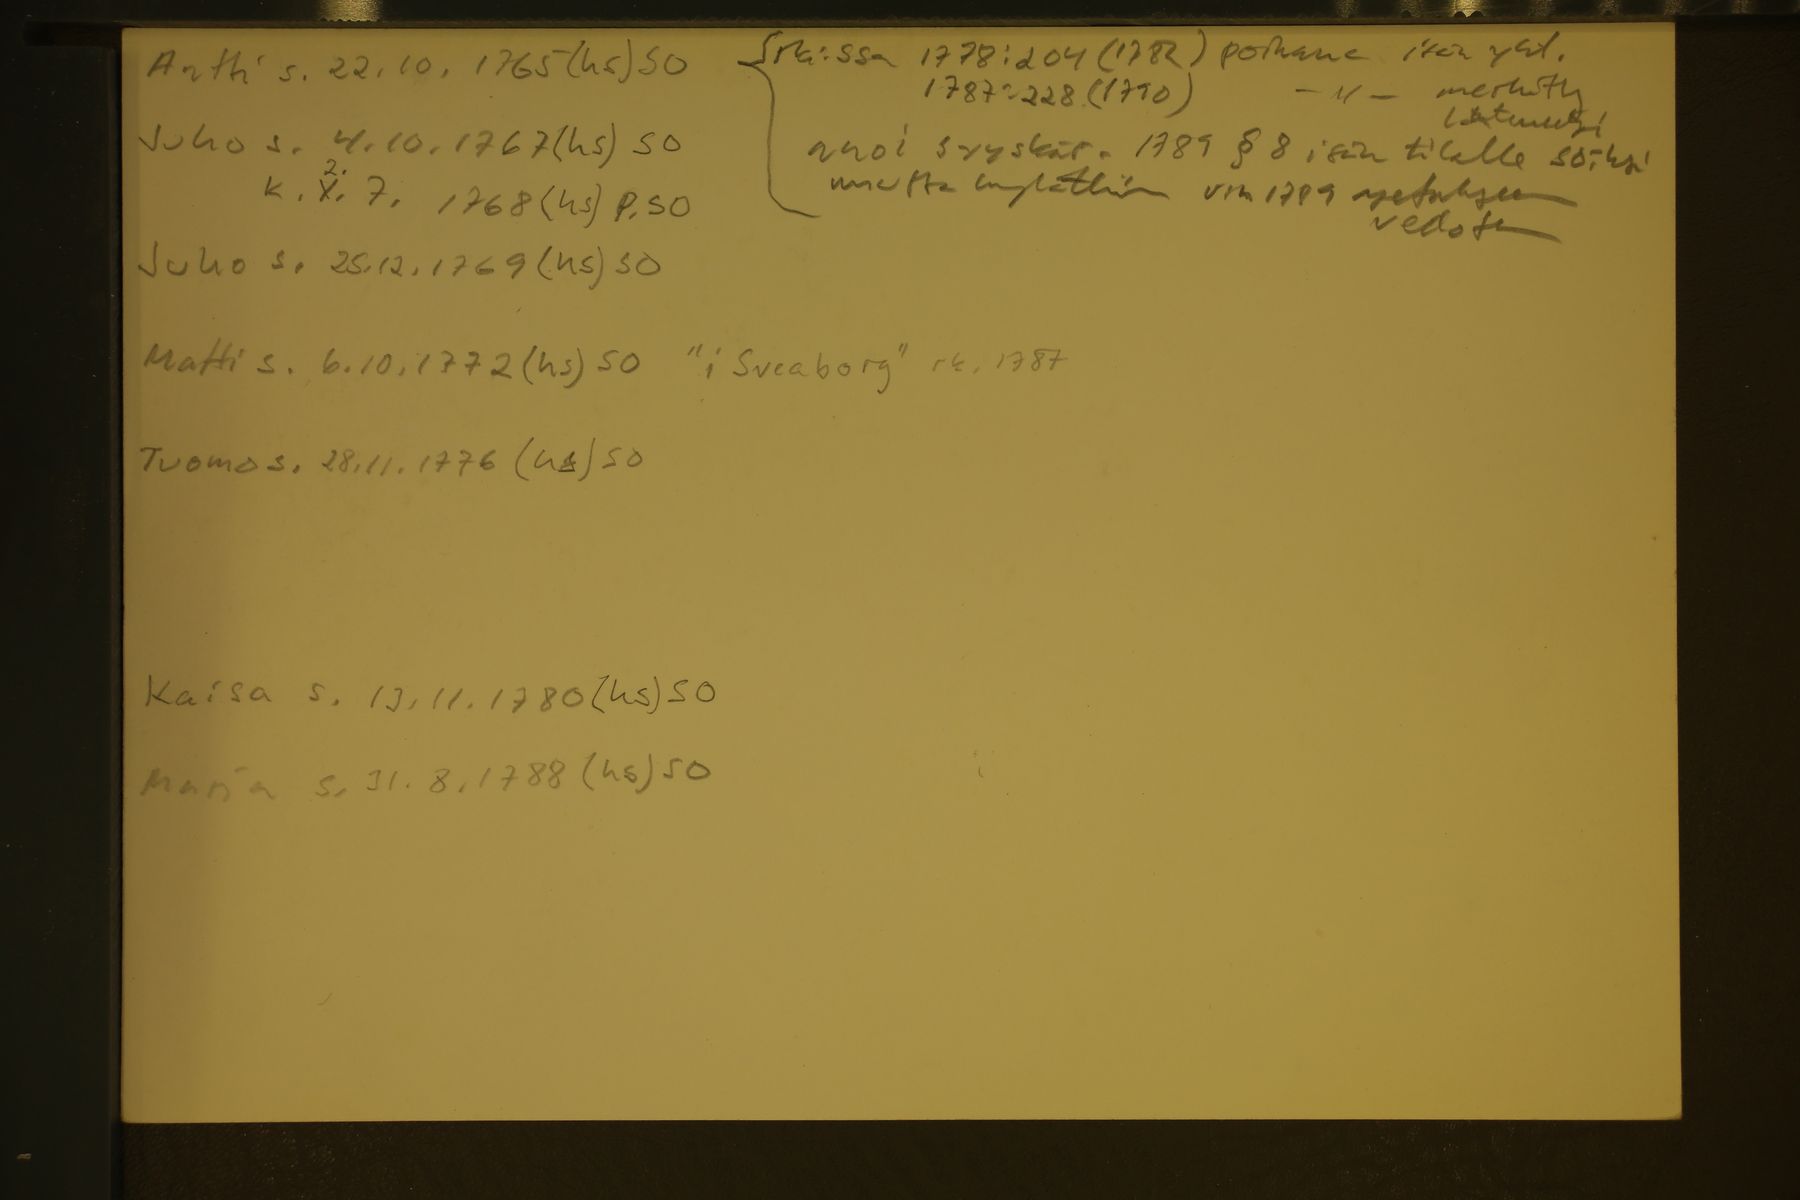 Antti s. 22.10. 1765 (hs) SO
Juho s. 4.10. 1767 (hs) SO
2.
k. X. 7. 1768 (hs) P. SO
Juho s. 25.12. 1769 (hs) SO
Matti s. 6.10. 1772 (hs) SO "i Sveaborg" rk. 1787
Tuomo s. 28.11. 1776 (hs) SO
Kaisa s. 13.11. 1780 (hs) SO
Marja s. 31.8. 1788 (hs) SO
1778:204 (1782) poikana isän
1787:228 (1790) -"- merkitty
anoi syyskär. 1789 § 8 isän tilalle
mutta v:n 1789
vedoten